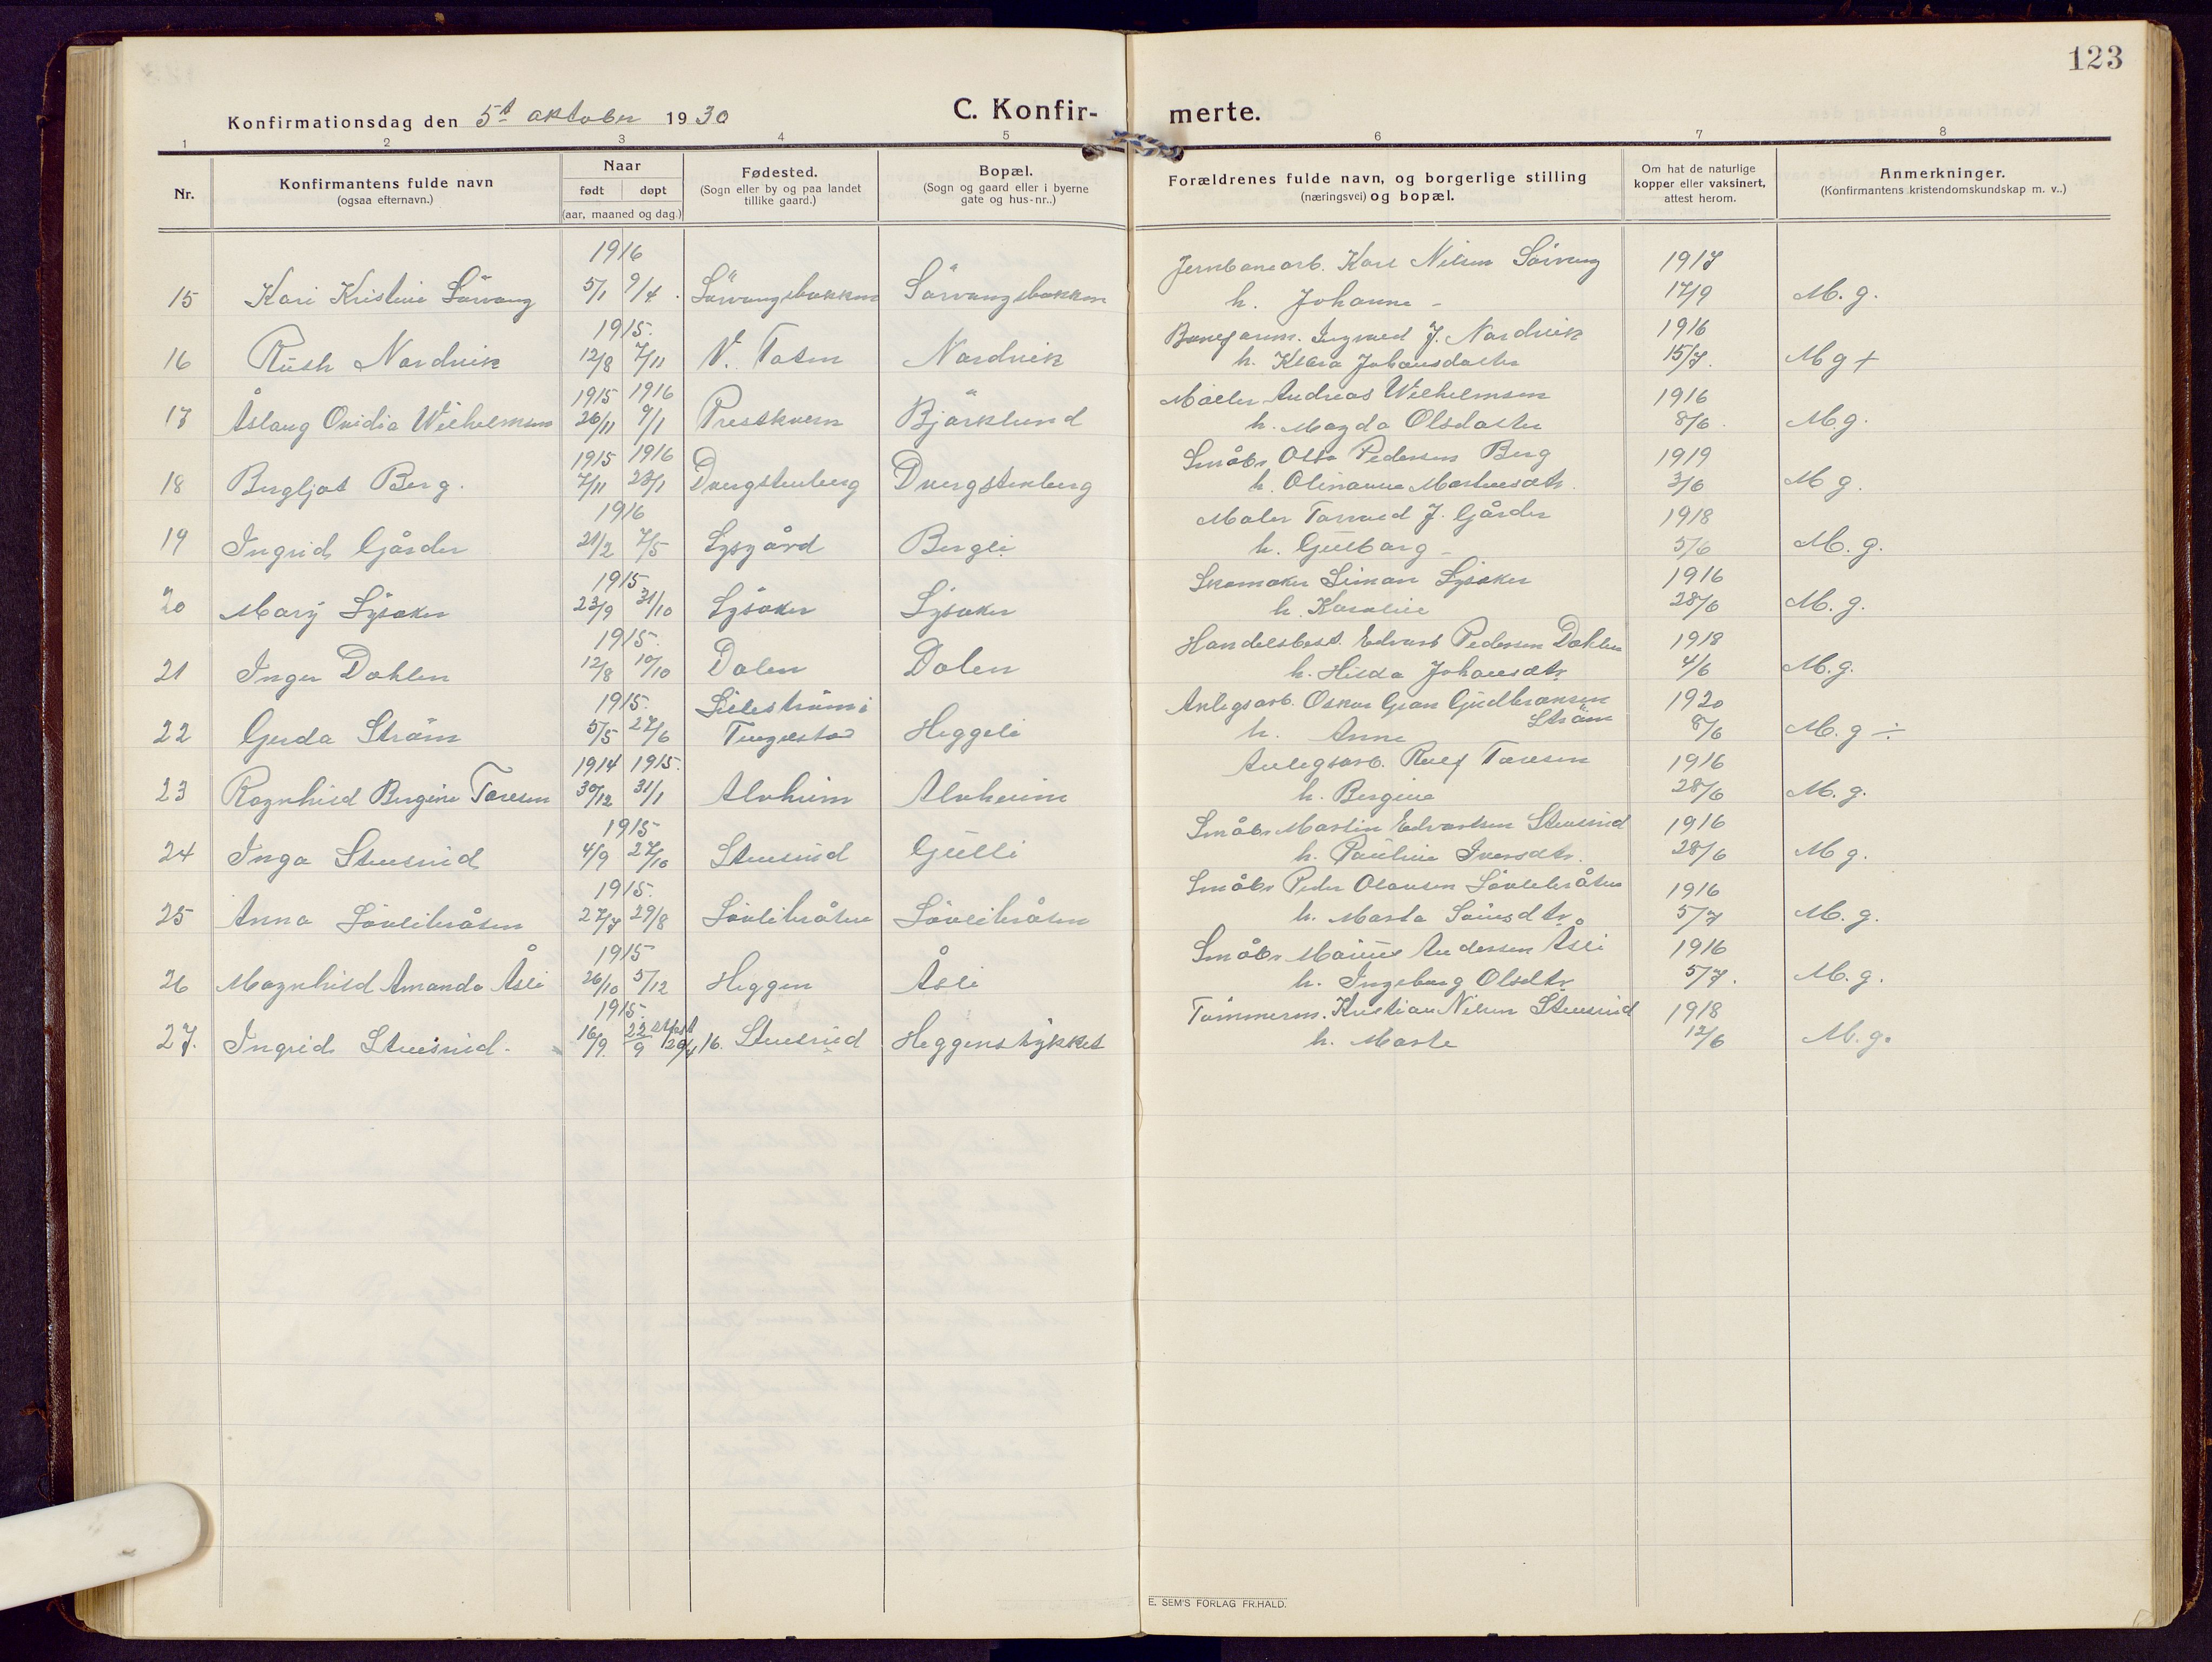 123
Konfirmationsdag den 5te oktober 1930
C. Konfir-
merte.
1 2 3 4 5 6 7 8
Nr.
Konfirmantens fulde navn
(ogsaa efternavn.)
Naar
født døpt
(aar, maaned og dag.)
Fødested.
(Sogn eller by og paa landet
tillike gaard.)
Bopæl.
(Sogn og gaard eller i byerne
gate og hus-nr..)
Forældrenes fulde navn, og borgerlige stilling
(næringsvei) og bopæl.
Om hat de naturlige
kopper eller vaksinert,
attest herom.
Anmerkninger.
(Konfirmantens kristendomskundskap m. v..)
1916 Jernbanearb. Karl Nilsen Sörvang 1917
15 Kari Kristine Sörvang 5/1 9/4. Sörvangsbakken Sörvangsbakken h. Johanne - 17/9 M. g.
1915. Baneform. Ingvald J. Nordvik 1916
16 Ruth Nordvik 12/8 7/11 V. Toten Nordvik h. Klara Johansdatter 15/7. M g +
1915 1916 Möller Andreas Wilhelmsen 1916
17 Åslaug Ovidia Wilhelmsen 26/11 9/1 Prestkvern Björklund h. Magda Olsdatter 8/6. M.g.
1915 1916 Småbr. Otto Pedersen Berg 1919
18 Bergljot Berg. 7/11 23/1 Dvergstenberg Dvergstenberg h. Olinanne Martinsdtr. 3/6 M g.
1916 Maler Torvald J. Gårder 1918
19 Ingrid Gårder 21/2 7/5 Lysgård Bergli h. Gulborg - 5/6 M. g.
1915 Skomaker Simon Lysaker 1916
20 Mary Lysaker 23/9 31/10 Lysaker Lysaker h. Karoline 28/6 M. g.
1915. Handelsbest. Edvart Pedersen Dahlen 1918
21 Inger Dahlen 12/8 10/10 Dalen Dalen h. Hilda Johansdtr. 4/6 M.g.
1915. Lilleström i Anlegsarb. Oskar Gran Gudbransen 1920
Ström
22 Gerda Ström 5/5 27/6 Tingelstad Heggeli h. Anne 8/6 M. g ÷
1914 1915. Anlegsarb. Rolf Toresen 1916
23 Ragnhild Bergine Toresen 30/12 31/1 Alvheim Alvheim h. Bergine 28/6 M. g.
1915 Småbr. Martin Edvartsen Stensrud 1916
24 Inga Stensrud 4/9 27/10 Stensrud Gulli h. Pauline Iversdtr. 28/6 M g.
1915. Småbr. Peder Olausen Lövlibråten 1916
25 Anna Lövlibråten 27/7 29/8 Lövlibråten Lövlibråten h. Marta 5/7 M. g.
1915 Småbr. Marius Andersen Åsli 1916
26 Magnhild Amanda Åsli 26/10 5/12 Heggen Åsli h. Ingeborg Olsdtr 5/7. M. g.
1915. Tömmerm. Kristian Nilsen Stensrud 1918
27. Ingrid Stensrud. 16/9. 22/9 24/4 16. Stensrud Heggenstykket h. Marte 12/6 M. g.
E. SEM'S FORLAG FR.HALD.